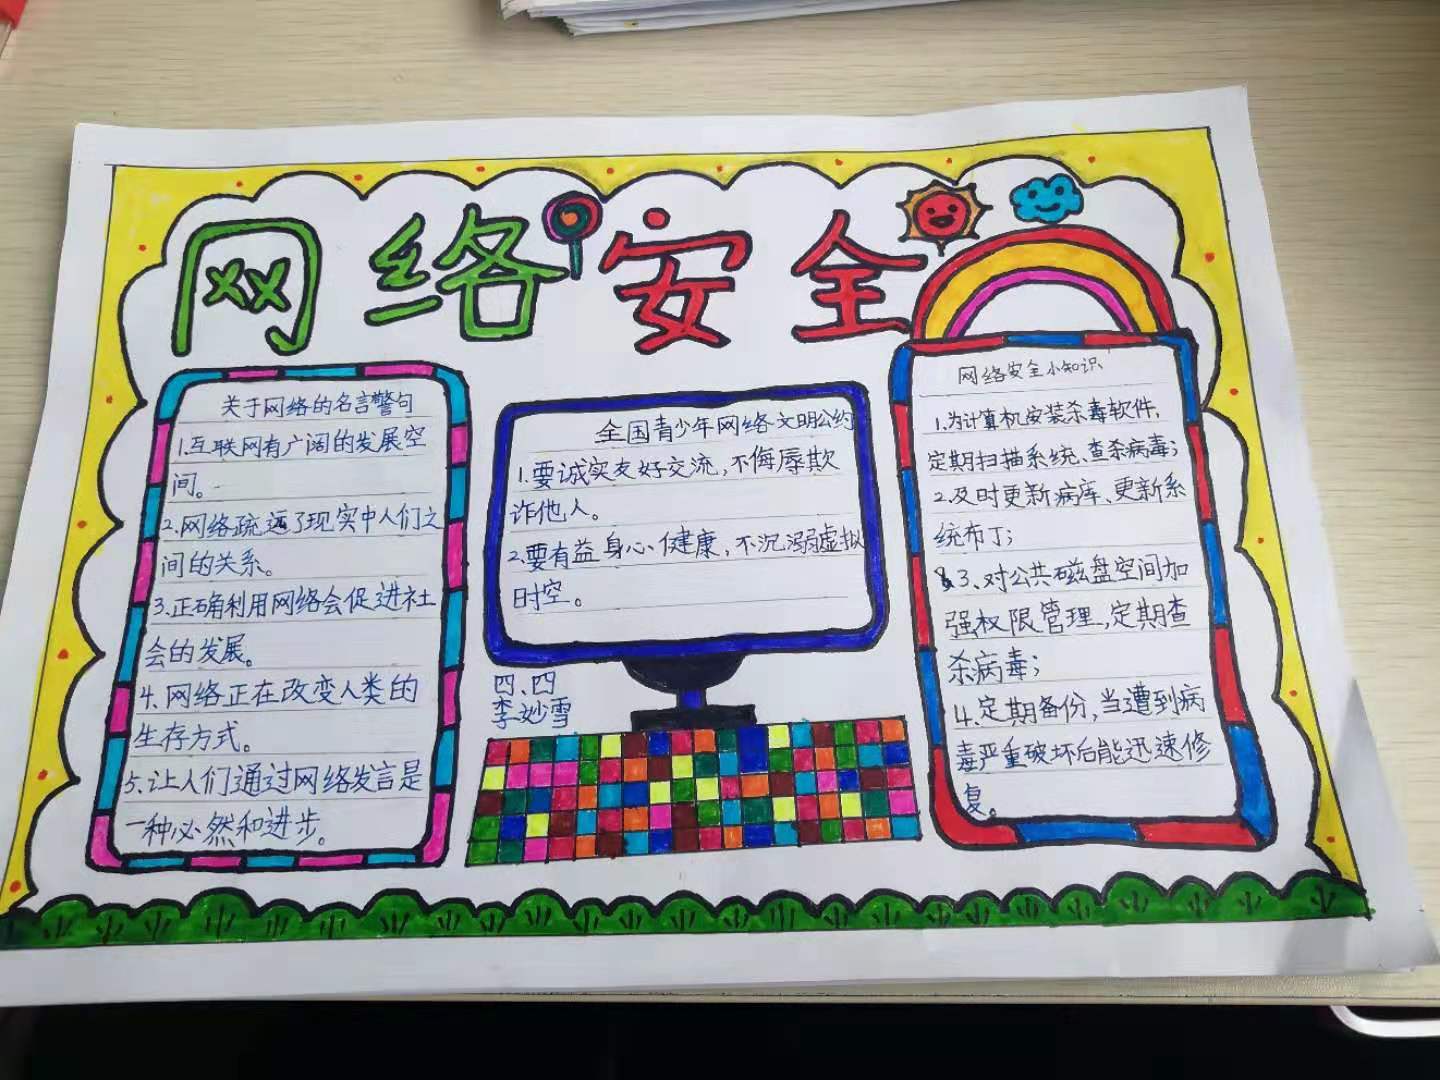 网络安全
关于网络的名言警句
1.互联网有广阔的发展空
间。
2.网络疏远了现实中人们之
间的关系。
3.正确利用网络会促进社
会的发展。
4.网络正在改变人类的
生存方式。
5.让人们通过网络发言是
一种必然和进步。
全国青少年网络文明公约
1.要诚实友好交流,不侮辱欺
诈他人。
2.要有益身心健康,不沉溺虚拟
时空。
四、四
李妙雪
网络安全小知识
1.为计算机安装杀毒软件,
定期扫描系统、查杀病毒;
2.及时更新病库、更新系
统布丁;
3、对公共磁盘空间加
强权限管理,定期查
杀病毒;
4.定期备份,当遭到病
毒严重破坏后能迅速修
复。